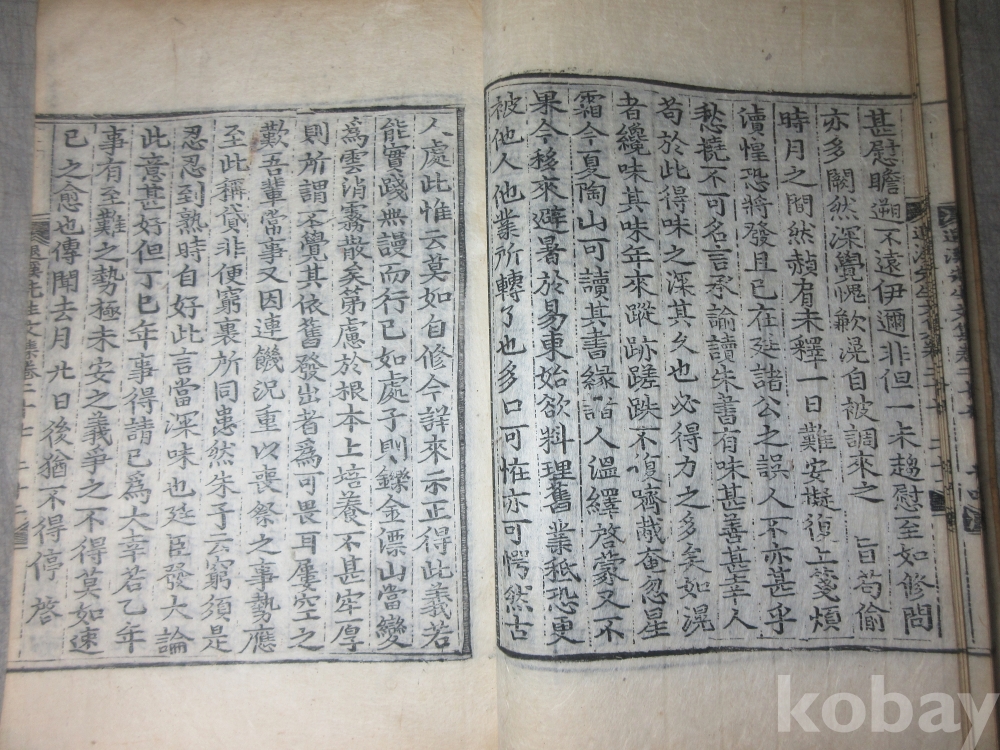 甚慰瞻遡不遠伊邇非但一未趍慰至如修問
亦多闕然深覺愧歉滉自被調來之 旨苟偷
時月之間然赬肩未釋一日難安擬復上箋煩
瀆惶恐將發且已在廷諸公之誤人不亦甚乎
愁撓不可名言承諭讀朱書有味甚善甚幸人
苟於此得味之深其久也必得力之多矣如滉
者纔味其味年來蹤跡蹉跌不負齎裁奄忽星
霜今夏陶山可讀其書緣詣人溫繹啓蒙又不
果今移來避暑於易東始欲料理舊業秪恐更
被他人他業所轉了也多口可怪亦可愕然古
人處此惟云莫如自修今詳來示正得此義若
能實踐無謾而行已如處子則鑠金漂山當變
爲雲消霧散矣第慮於根本上培養不甚牢厚
則所謂不覺其依舊發出者爲可畏耳屢空之
歎吾輩常事又因連饑況重以喪祭之事勢應
至此稱貸非便窮裏所同患然朱子云窮須是
忍忍到熟時自好此言當深味也廷臣發大論
此意甚好但丁巳年事得請已爲大幸若乙年
事有至難之勢極未安之義爭之不得莫如速
已之愈也傳聞去月九日後猶不得停啓
退溪先生文集卷二十七 二十二
kobay